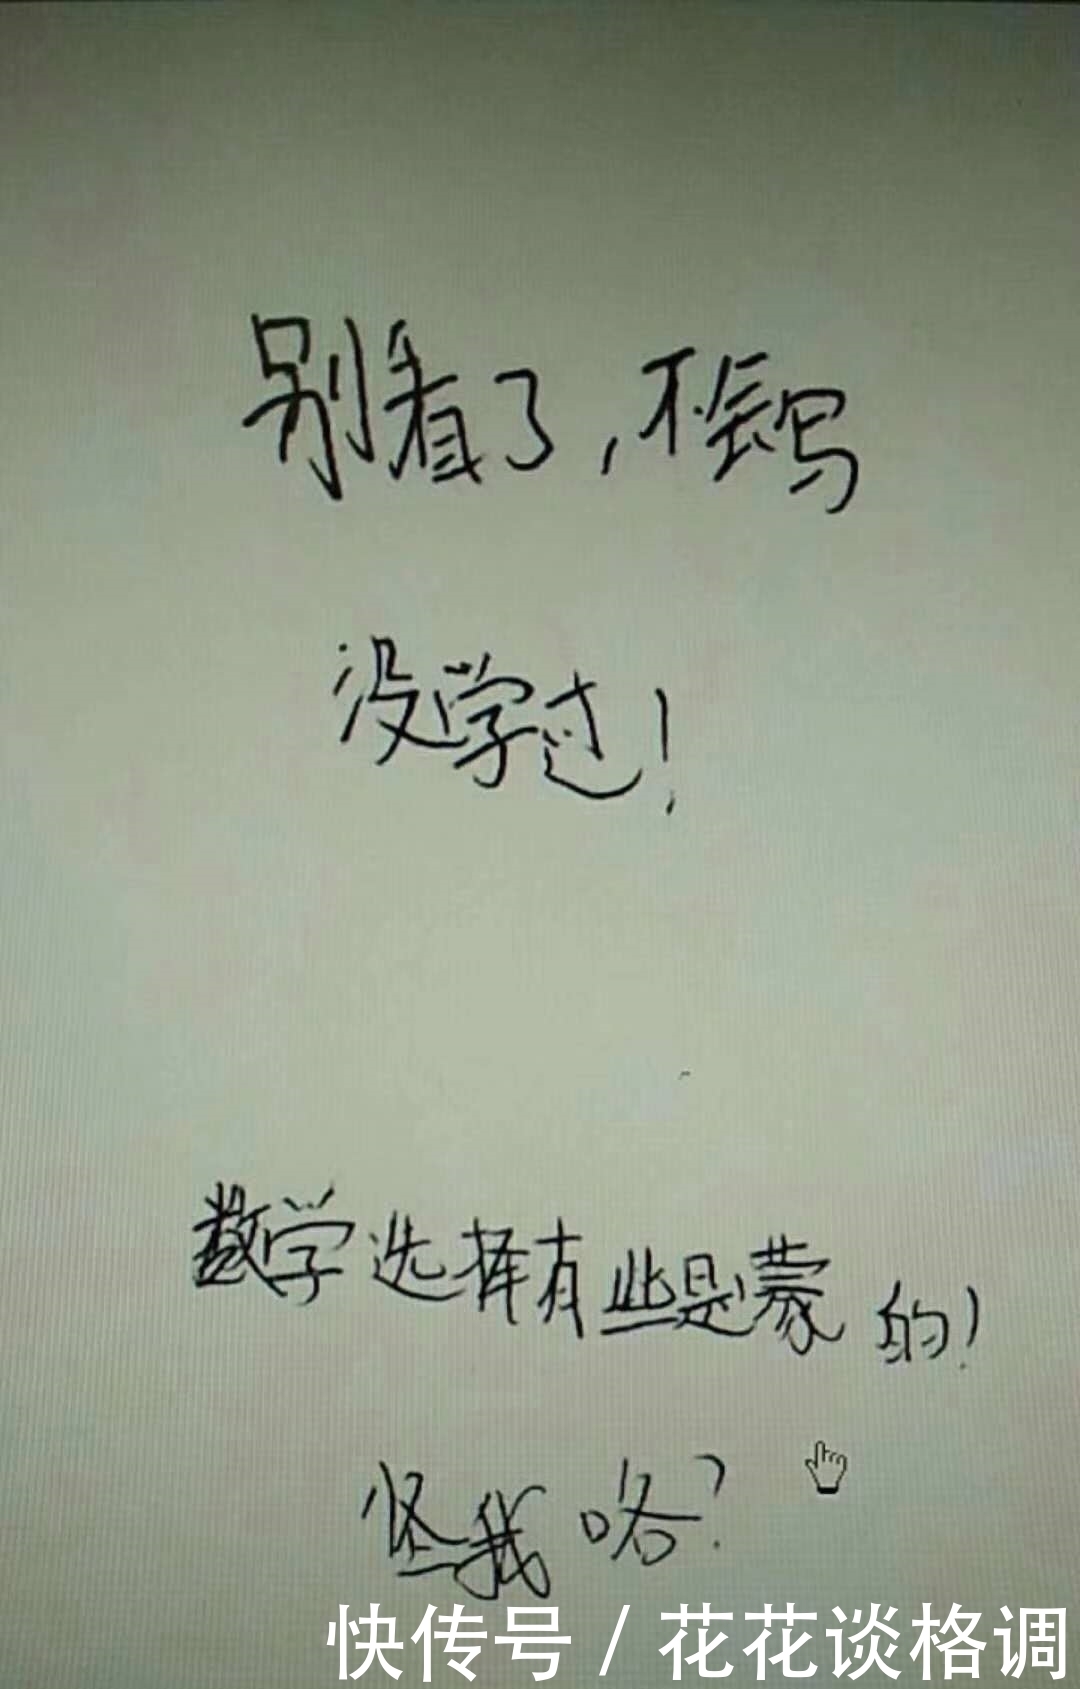 别看了,不会写
没学过!
数学选择有些是蒙的!
怪我咯?
快传号/花花谈格调